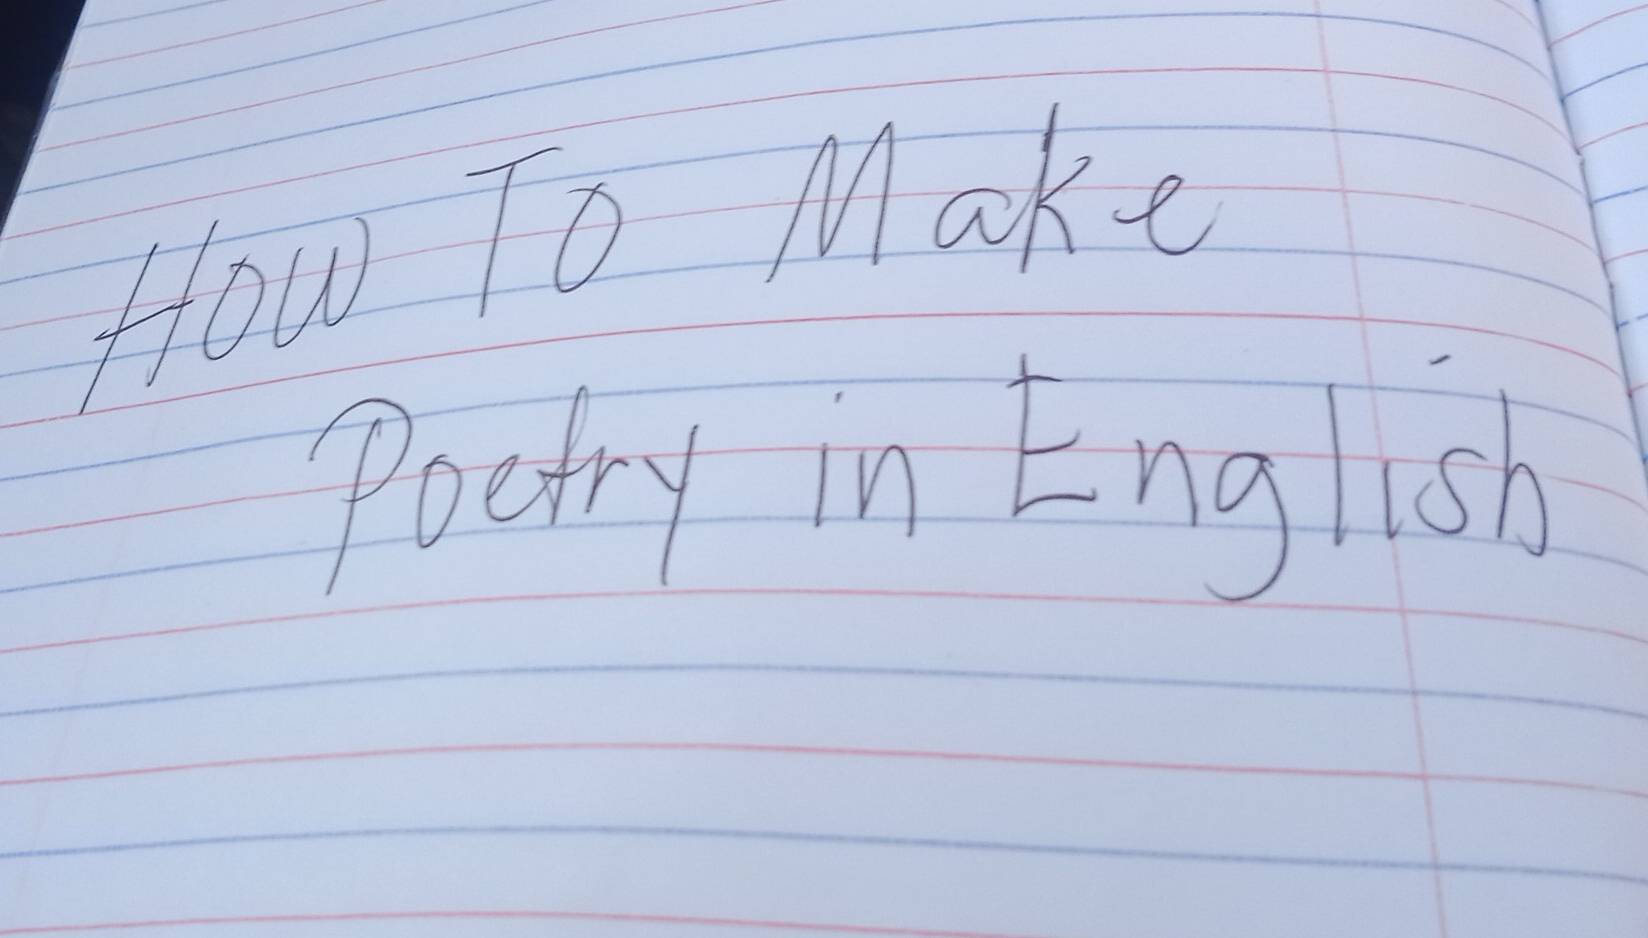 How To Make
Poetry in English